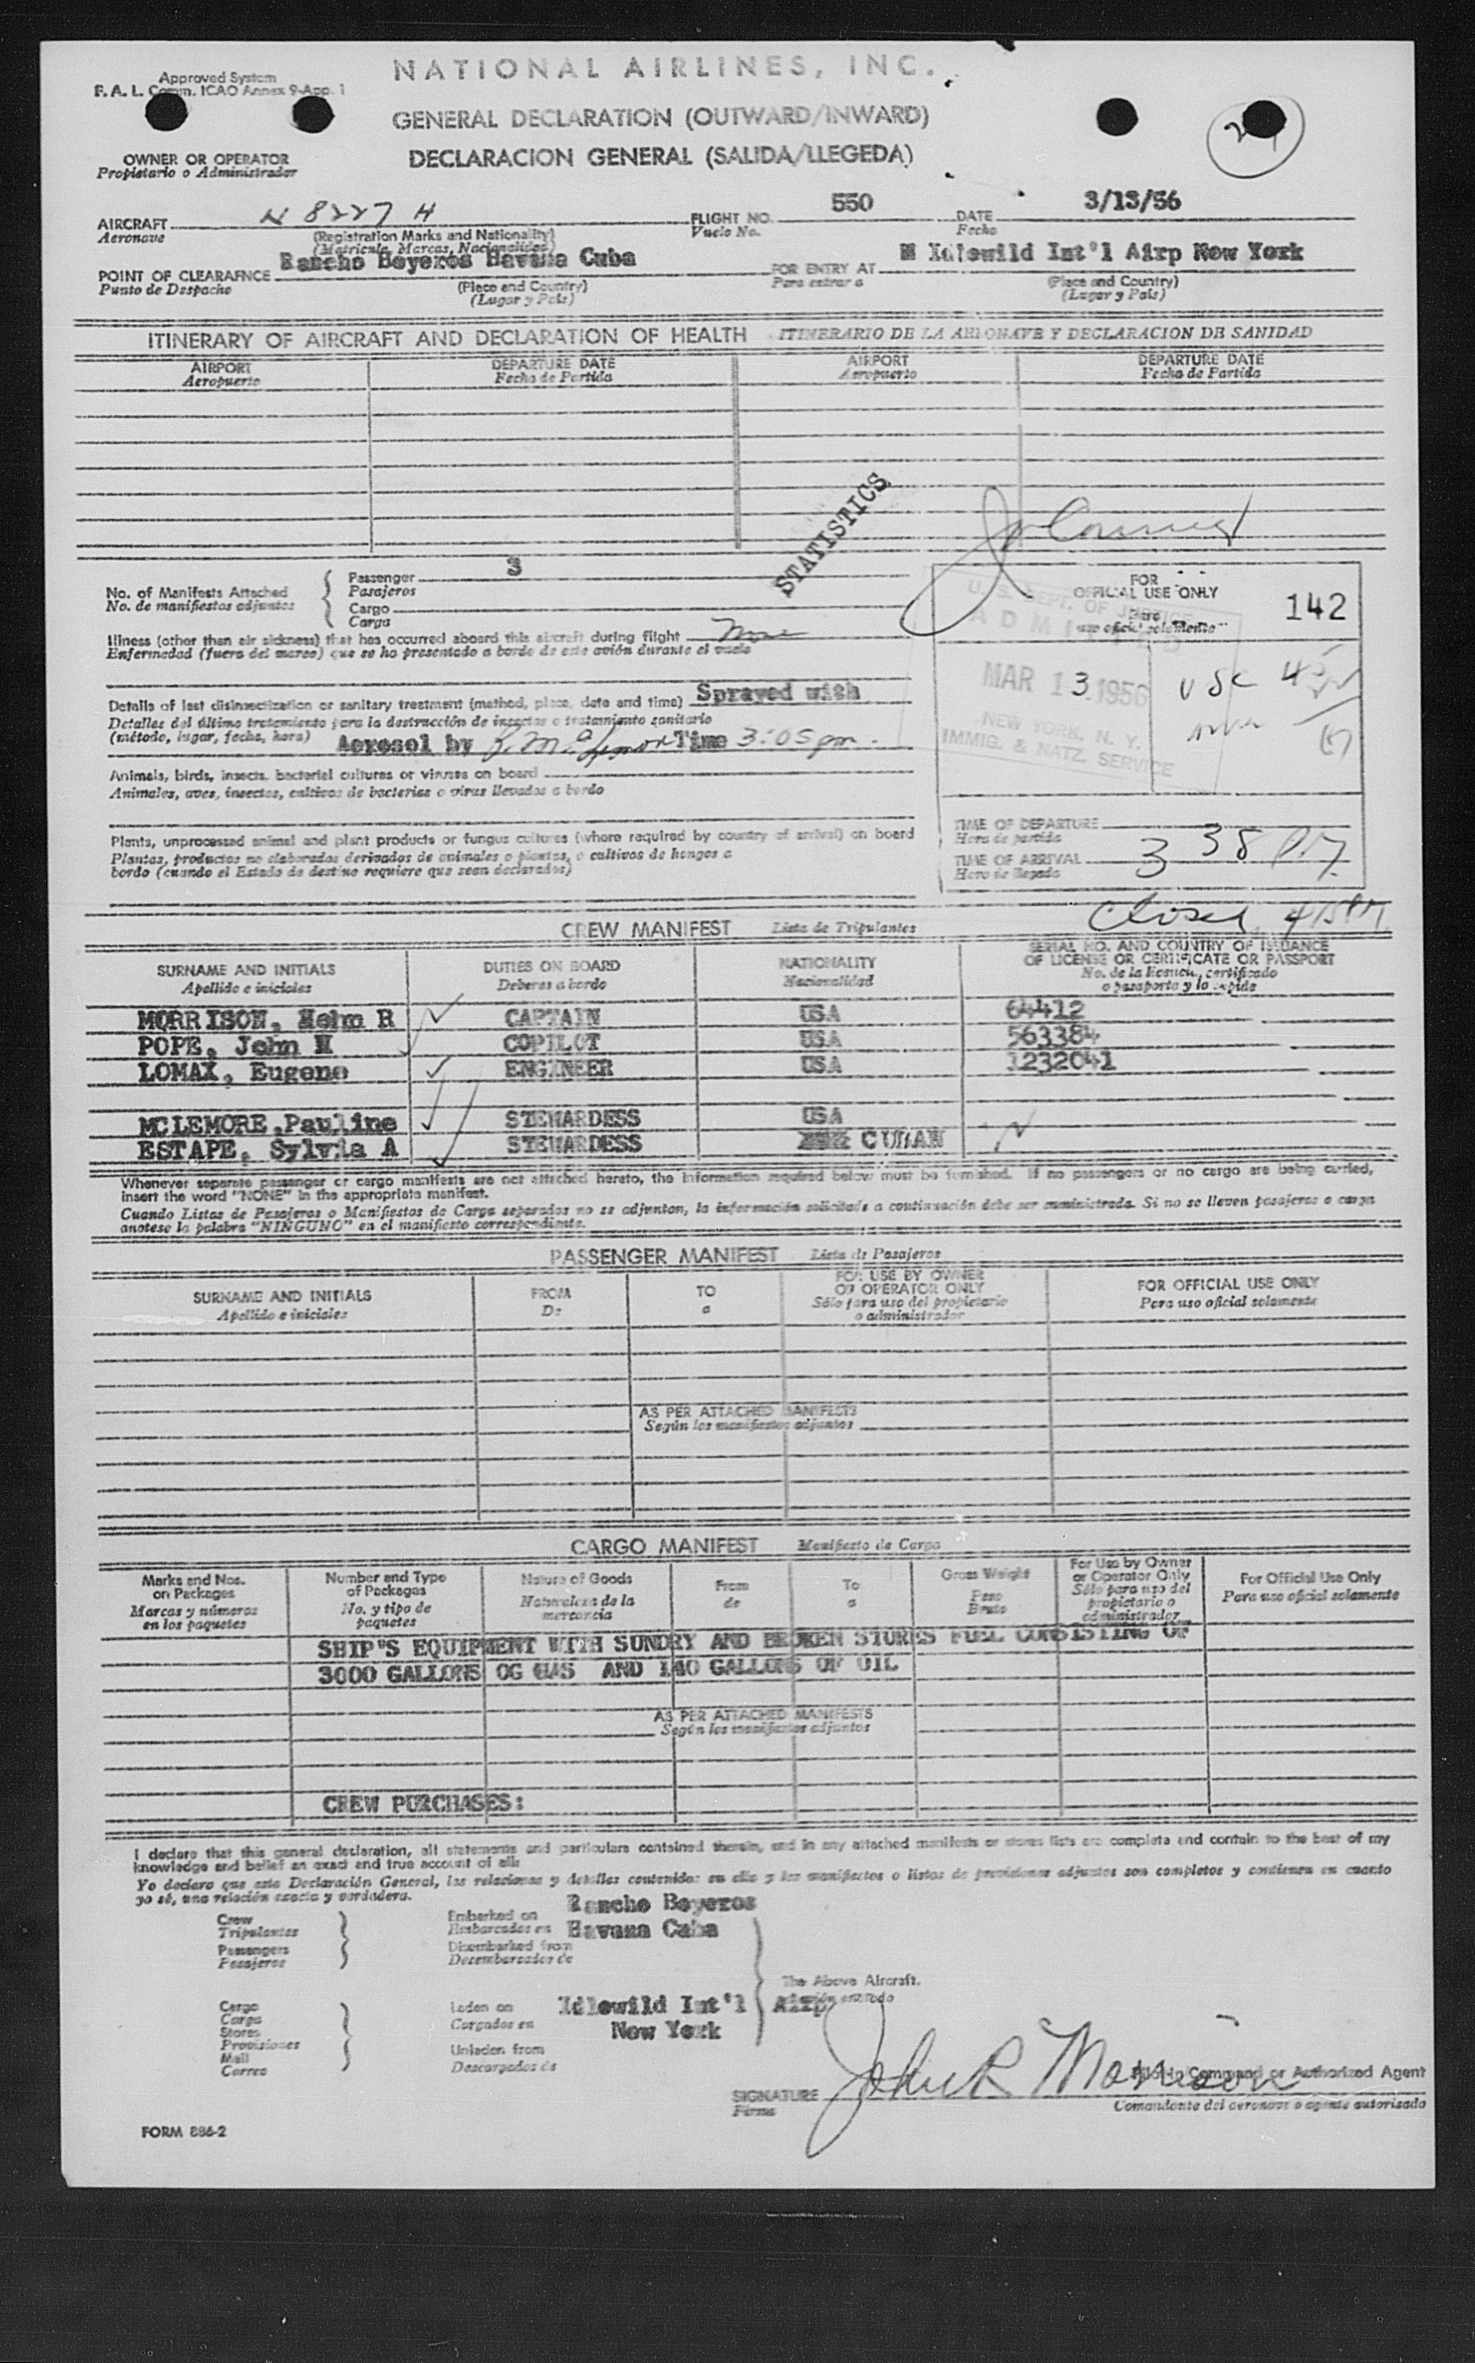 NATIONAL AIRLINES, INC.
Approved System
F. A. L. Comm. ICAO Annex 9-App. 1
GENERAL DECLARATION (OUTWARD/INWARD)
DECLARACION GENERAL (SALIDA/LLEGEDA)
OWNER OR OPERATOR
Propietario o Administrador
AIRCRAFT N 8227 H FLIGHT NO. 550 DATE 3/13/56
Aeronave (Registration Marks and Nationality) Vuelo No. Fecha
(Matricula, Marcas, Nacionalidad)
POINT OF CLEARAFNCE Rancho Boyeros Havana Cuba FOR ENTRY AT Idlewild Int'l Airp New York
Punto de Despacho (Place and Country) Para entrar a (Place and Country)
(Lugar y Pais) (Lugar y Pais)
ITINERARY OF AIRCRAFT AND DECLARATION OF HEALTH ITINERARIO DE LA AERONAVE Y DECLARACION DE SANIDAD
AIRPORT DEPARTURE DATE AIRPORT DEPARTURE DATE
Aeropuerto Fecha de Partida Aeropuerto Fecha de Partida
STATISTICS
No. of Manifests Attached Passenger 3
No. de manifiestos adjuntos Pasajeros
Cargo
Carga
FOR
OFFICIAL USE ONLY 142
Para
uso oficial solamente
U. S. DEPT. OF JUSTICE
ADMITTED
MAR 13 1956
NEW YORK, N. Y.
IMMIG. & NATZ. SERVICE
USC
Illness (other than air sickness) that has occurred aboard this aircraft during flight None
Enfermedad (fuera del mareo) que se ha presentado a bordo de este avión durante el vuelo
Details of last disinsectization or sanitary treatment (method, place, date and time) Sprayed with
Detalles del último tratamiento para la destrucción de insectos o tratamiento sanitario
(método, lugar, fecha, hora) Aerosol by Time 3:05 pm.
Animals, birds, insects, bacterial cultures or viruses on board
Animales, aves, insectos, cultivos de bacterias o virus llevados a bordo
Plants, unprocessed animal and plant products or fungus cultures (where required by country of arrival) on board
Plantas, productos no elaborados derivados de animales o plantas, o cultivos de hongos a
bordo (cuando el Estado de destino requiere que sean declarados)
TIME OF DEPARTURE
Hora de partida
TIME OF ARRIVAL 3 38 P.M.
Hora de llegada
Closed
CREW MANIFEST Lista de Tripulantes
SURNAME AND INITIALS DUTIES ON BOARD NATIONALITY SERIAL NO. AND COUNTRY OF ISSUANCE
OF LICENSE OR CERTIFICATE OR PASSPORT
Apellido e iniciales Deberes a bordo Nacionalidad No. de la licencia, certificado
o pasaporte y lo expide
MORRISON, R CAPTAIN USA 64412
POPE, John COPILOT USA 563384
LOMAX, Eugene ENGINEER USA 1232041
MCLEMORE,Pauline STEWARDESS USA
ESTAPE, Sylvia A STEWARDESS CUBAN
Whenever separate passenger or cargo manifests are not attached hereto, the information required below must be furnished. If no passengers or no cargo are being carried,
insert the word "NONE" in the appropriate manifest.
Cuando Listas de Pasajeros o Manifiestos de Carga separados no se adjuntan, la información solicitada a continuación debe ser suministrada. Si no se lleven pasajeros o carga
anotese la palabra "NINGUNO" en el manifiesto correspondiente.
PASSENGER MANIFEST Lista de Pasajeros
SURNAME AND INITIALS FROM TO FOR USE BY OWNER
OR OPERATOR ONLY FOR OFFICIAL USE ONLY
Apellido e iniciales De a Sólo para uso del propietario
o administrador Para uso oficial solamente
AS PER ATTACHED MANIFESTS
Según los manifiestos adjuntos
CARGO MANIFEST Manifiesto de Carga
Marks and Nos.
on Packages
Marcas y números
en los paquetes
Number and Type
of Packages
No. y tipo de
paquetes
Nature of Goods
Naturaleza de la
mercancia
From
de
To
a
Gross Weight
Peso
Bruto
For Use by Owner
or Operator Only
Sólo para uso del
propietario o
administrador
For Official Use Only
Para uso oficial solamente
SHIP'S EQUIPMENT WITH SUNDRY AND BROKEN STORES FUEL CONSISTING OF
3000 GALLONS OG GAS AND 140 GALLONS OF OIL
AS PER ATTACHED MANIFESTS
Según los manifiestos adjuntos
CREW PURCHASES:
I declare that this general declaration, all statements and particulars contained therein, and in any attached manifests or stores lists are complete and contain to the best of my
knowledge and belief an exact and true account of all:
Yo declaro que esta Declaración General, las relaciones y detalles contenidos en ella y los manifiestos o listas de provisiones adjuntos son completos y contienen en cuanto
yo sé, una relación exacta y verdadera.
Crew
Tripulantes
Passengers
Pasajeros
Embarked on Rancho Boyeros
Embarcados en Havana Cuba
Disembarked from
Desembarcados de
The Above Aircraft.
Cargo
Carga
Stores
Provisiones
Mail
Correo
Laden on Idlewild Int'l Airp
Cargados en New York
Unladen from
Descargados de
SIGNATURE John R Morrison Pilot-in Command or Authorized Agent
Firma Comandante del aeronave o agente autorizado
FORM 886-2